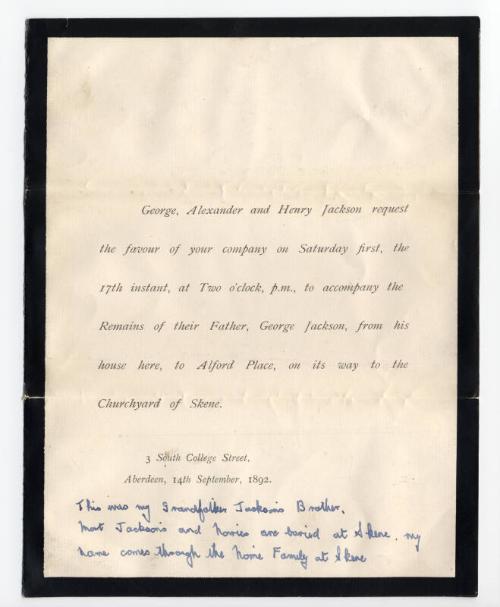 George, Alexander and Henry Jackson request
the favour of your company on Saturday first, the
17th instant, at Two o'clock, p.m., to accompany the
Remains of their Father, George Jackson, from his
house here, to Alford Place, on its way to the
Churchyard of Skene.
3 South College Street,
Aberdeen, 14th September, 1892.
This was my Grandfather Jacksons Brother.
Most Jacksons and Norries are buried at Skene. my
name comes through the Norrie Family at Skene